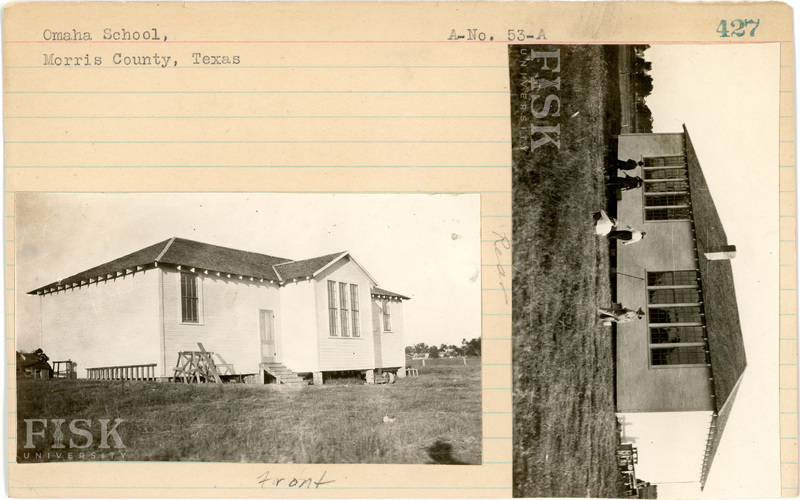 Omaha School,
A-No. 53-A
427
Morris County, Texas
FISK
UNIVERSITY
Rear
FISK
UNIVERSITY
Front